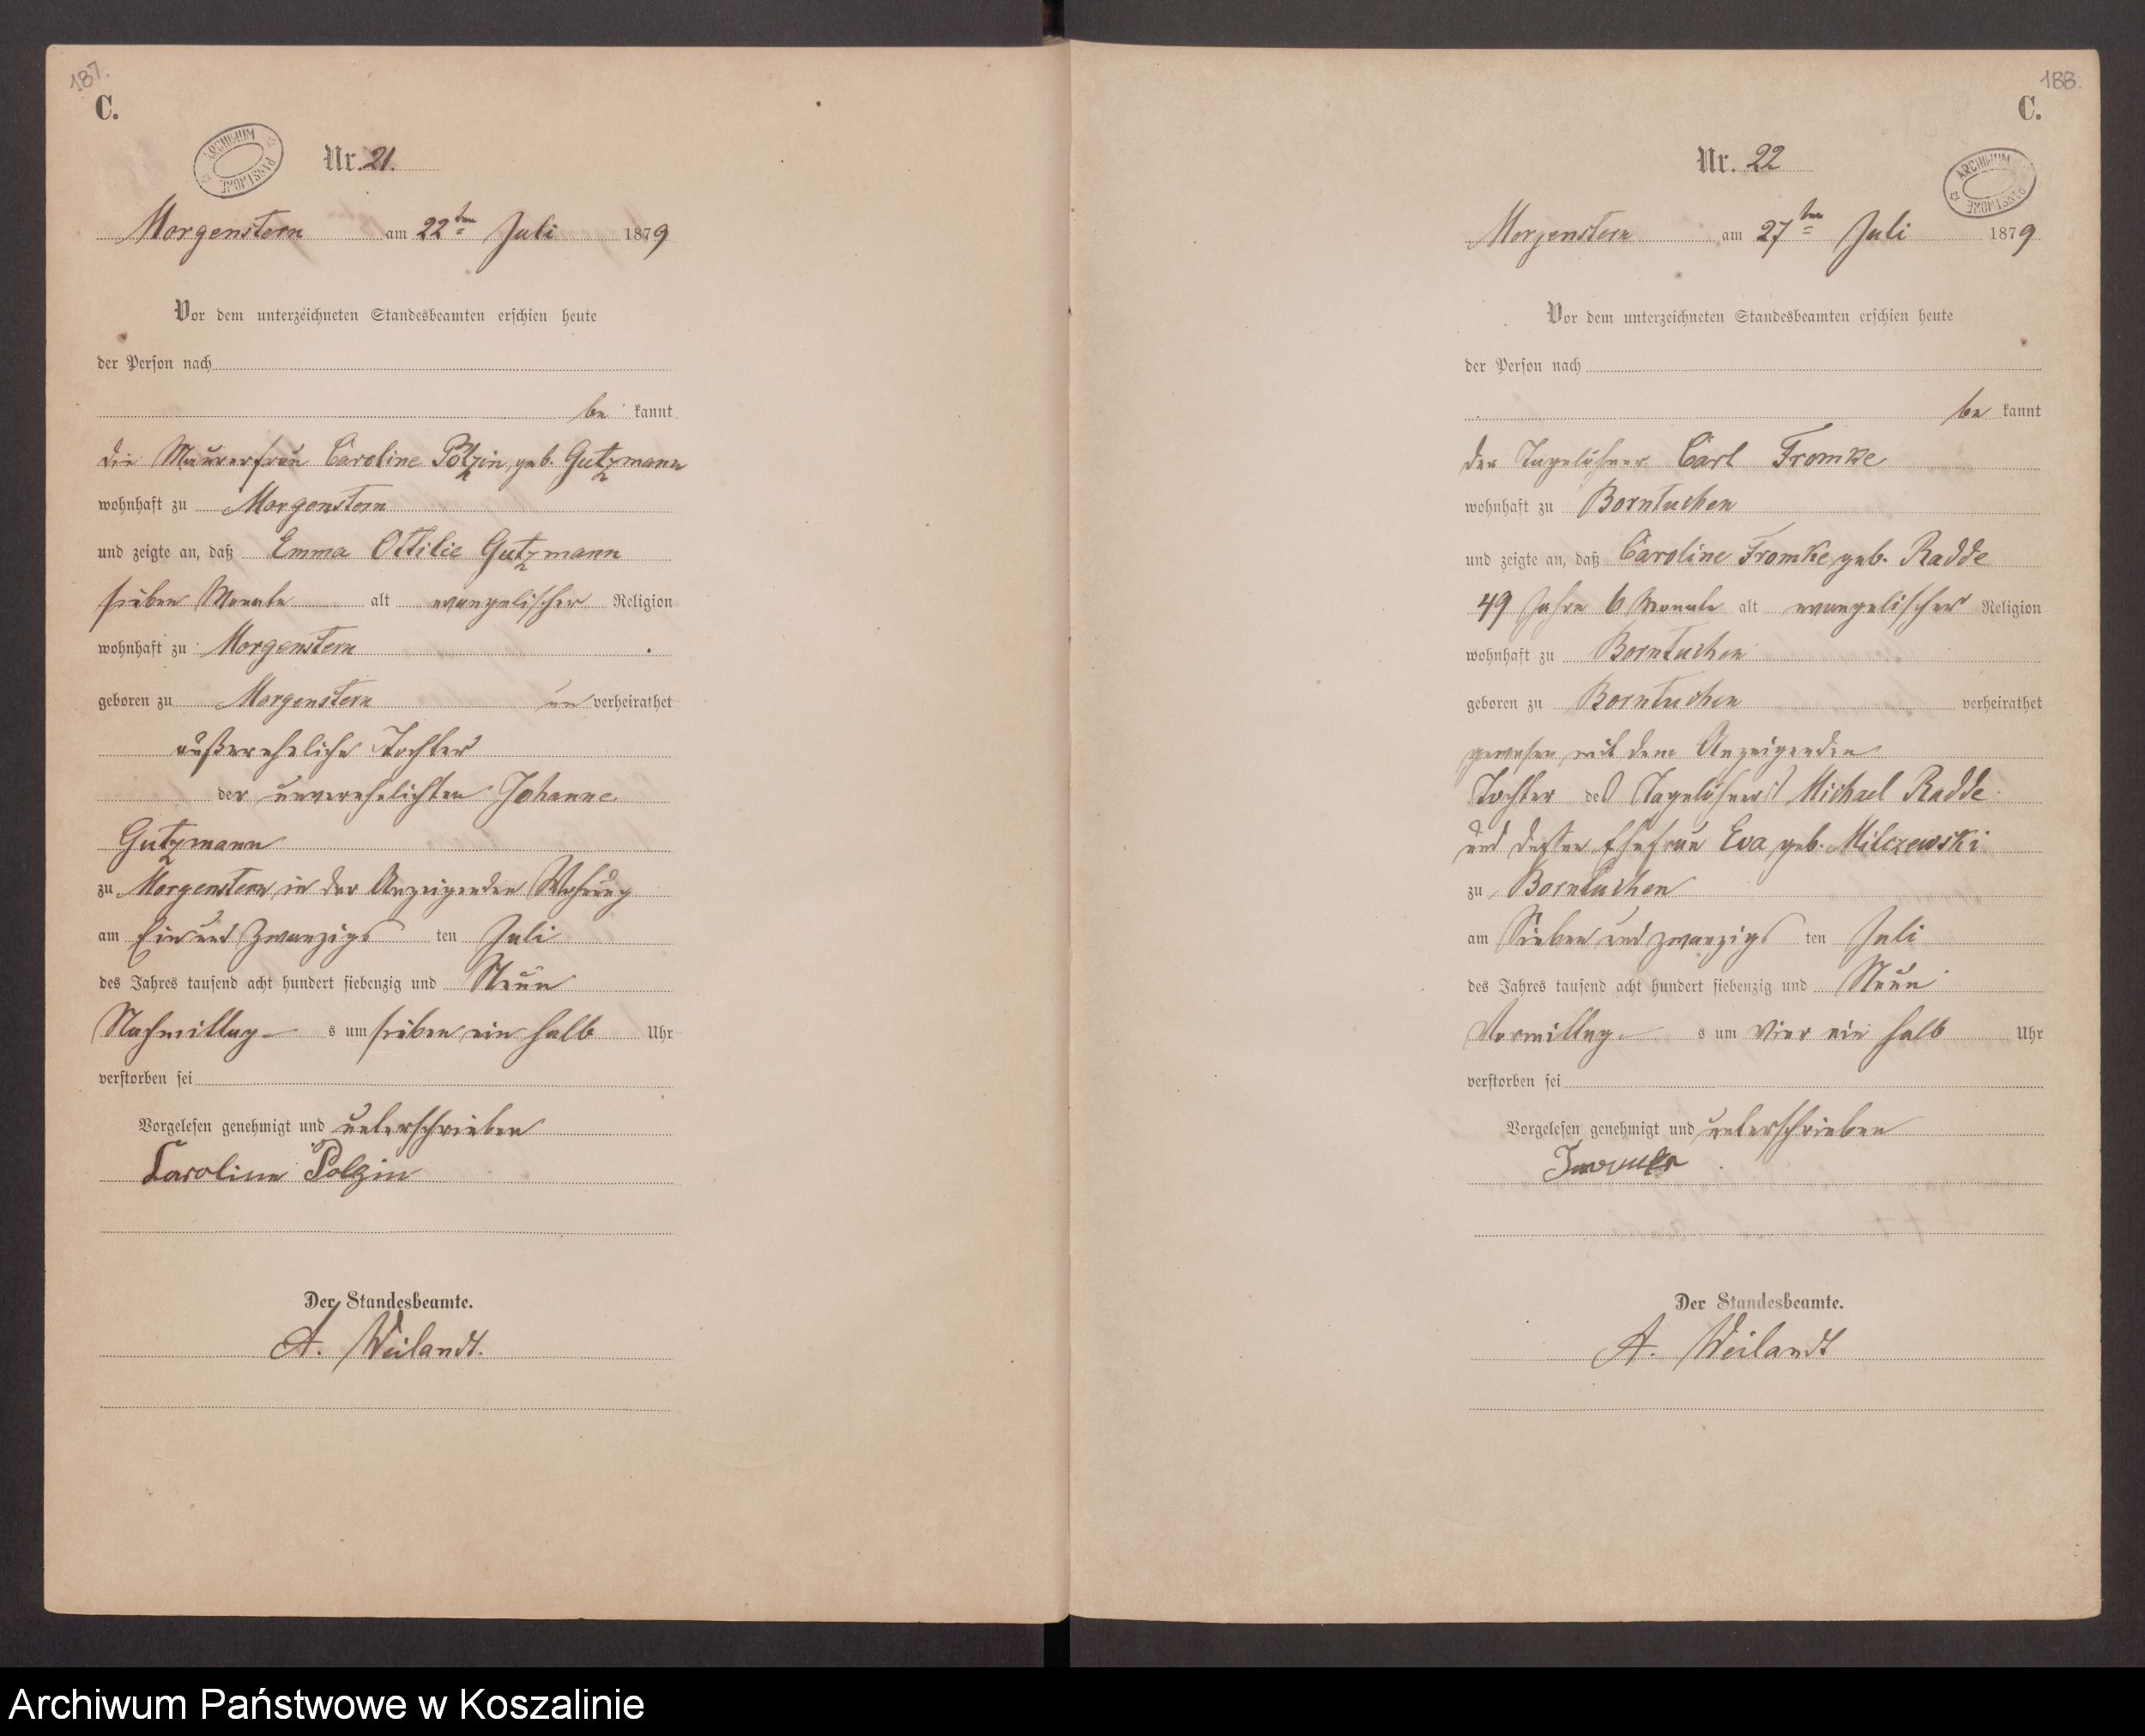 187.
C.
ARCHIWUM PAŃSTWOWE
Nr. 21.
Morgenstern am 22ten Juli 1879
Vor dem unterzeichneten Standesbeamten erschien heute
der Person nach
be kannt
die Maurerfrau Caroline Poltzin, geb. Gutzmann
wohnhaft zu Morgenstern
und zeigte an, daß Emma Ottilie Gutzmann
sieben Monate alt evangelischer Religion
wohnhaft zu Morgenstern
geboren zu Morgenstern un verheirathet
außereheliche Tochter
der unverehelichten Johanne
Gutzmann
zu Morgenstern in der Anzeigenden Wohnung
am Ein und Zwanzigs ten Juli
des Jahres tausend acht hundert siebenzig und Neun
Nachmittag s um sieben ein halb Uhr
verstorben sei
Vorgelesen genehmigt und unterschrieben
Caroline Polzin
Der Standesbeamte.
A. Weilandt.
188.
C.
ARCHIWUM PAŃSTWOWE
Nr. 22
Morgenstern am 27ten Juli 1879
Vor dem unterzeichneten Standesbeamten erschien heute
der Person nach
be kannt
der Tagelöhner Carl Fromke
wohnhaft zu Borntuchen
und zeigte an, daß Caroline Fromke geb. Radde
49 Jahre 6 Monate alt evangelischer Religion
wohnhaft zu Borntuchen
geboren zu Borntuchen verheirathet
gewesen mit dem Anzeigenden
Tochter des Tagelöhners Michael Radde
und dessen Ehefrau Eva, geb. Milczewski
zu Borntuchen
am Sieben und zwanzigs ten Juli
des Jahres tausend acht hundert siebenzig und Neun
Vormittag s um Vier ein halb Uhr
verstorben sei
Vorgelesen genehmigt und unterschrieben
Der Standesbeamte.
A. Weilandt
Archiwum Państwowe w Koszalinie